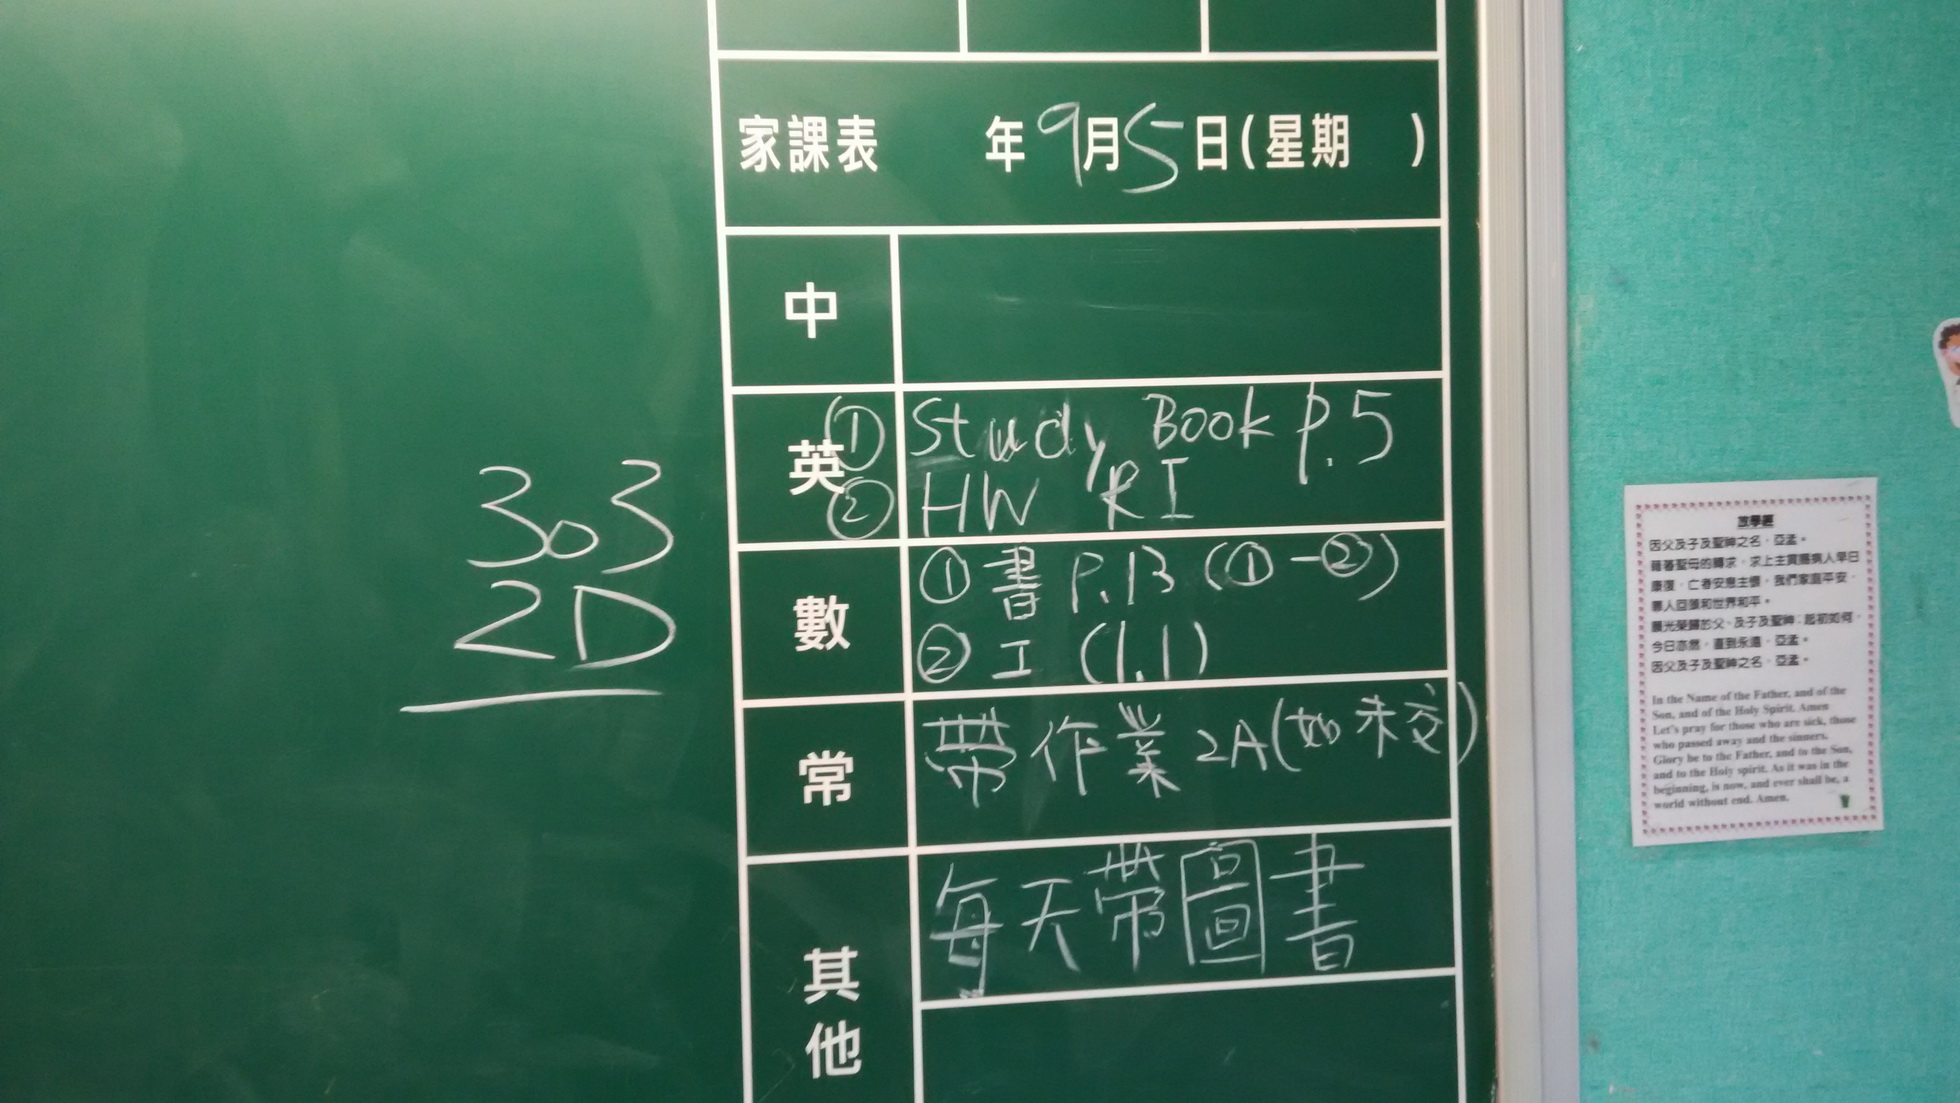 家課表 年9月5日(星期 )
中
英
① Study Book P.5
② HW R1
數
① 書 P.13 (①-②)
② 工 (1.1)
常
帶作業2A(如未交)
其他
每天帶圖書
303
2D
放學經
因父及子及聖神之名，亞孟。
藉著聖母的轉求，求上主賞賜病人早日
康復，亡者安息主懷，我們家庭平安，
罪人回頭和世界和平。
願光榮歸於父、及子及聖神；起初如何，
今日亦然，直到永遠，亞孟。
因父及子及聖神之名，亞孟。
In the Name of the Father, and of the
Son, and of the Holy Spirit. Amen
Let's pray for those who are sick, those
who passed away and the sinners.
Glory be to the Father, and to the Son,
and to the Holy spirit. As it was in the
beginning, is now, and ever shall be, a
world without end. Amen.